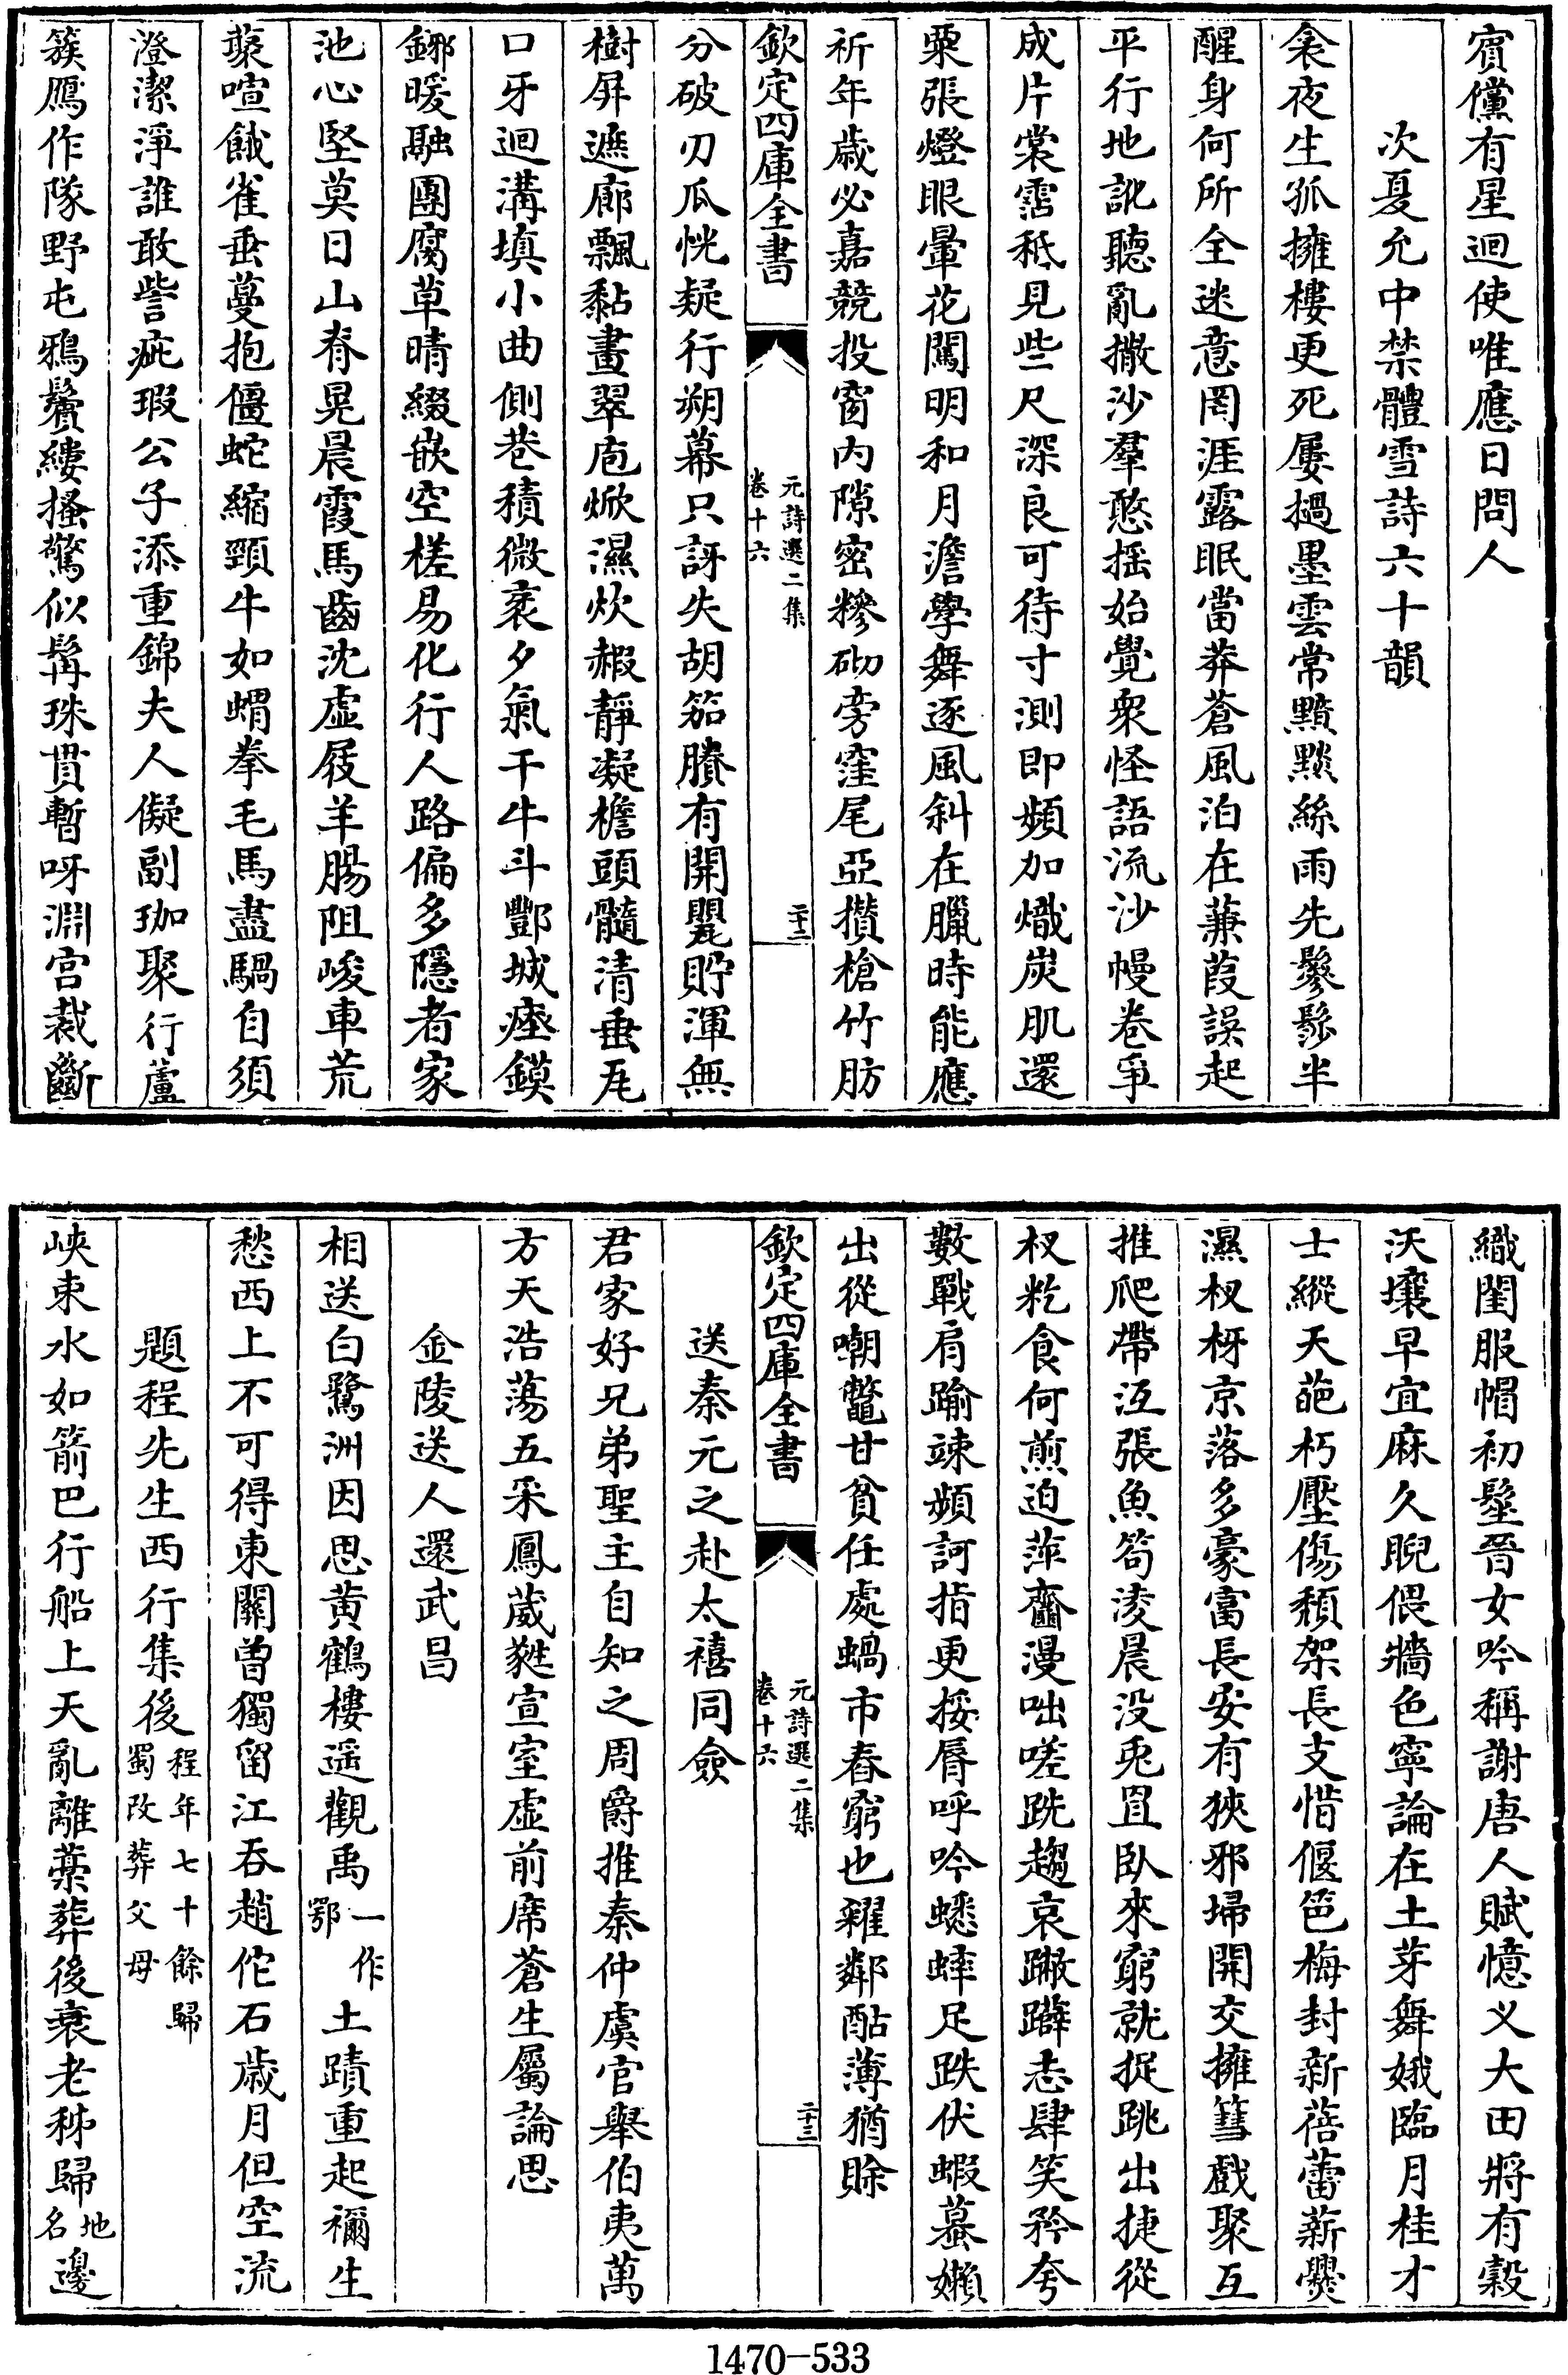 賔儻有星迴使唯應日問人
次夏允中禁體雪詩六十韻
衾夜生孤擁樓更死屢撾墨雲常黯黮絲雨先鬖髿半
醒身何所全迷意罔涯露眠當莽蒼風泊在蒹葭誤起
平行地訛聽亂撒沙羣憨揺始覺衆怪語流沙幔卷爭
成片裳霑秪見些尺深良可待寸測即頻加熾炭肌還
粟張燈眼暈花闖明和月澹學舞逐風斜在臘時能應
祈年歲必嘉競投窗内隙密糝砌旁窪尾亞攅槍竹肪
欽定四庫全書
元詩選二集
卷十六
二十二
分破刃瓜恍疑行朔幕只訝失胡笳賸有開甖貯渾無
樹屏遮廊飄黏畫翠庖㷫濕炊赮靜凝檐頭髓清垂瓦
口牙迴溝填小曲側巷積微衺夕氣干牛斗酆城瘞鏌
鎁暖融團腐草晴綴嵌空槎易化行人路偏多隱者家
池心堅莫日山脊晃晨霞馬齒沈虛屐羊腸阻峻車荒
藂喧餓雀垂蔓抱僵蛇縮頸牛如蝟拳毛馬盡騧自須
澄潔淨誰敢訾疵瑕公子添重錦夫人儗副珈聚行蘆
簇鴈作隊野屯鴉鬢縷搔驚似髯珠貫暫呀淵宫裁斷
織閨服帽初髽晉女吟稱謝唐人賦憶义大田將有穀
沃壤早宜麻久睨偎牆色寧論在土芽舞娥臨月桂才
士縱天葩朽壓傷頽架長支惜偃笆梅封新蓓蕾薪㸑
濕杈枒京落多豪富長安有狹邪埽開交擁篲戲聚互
推爬帶沍張魚笱淩晨没兎罝臥來窮就捉跳出捷從
杈籺食何煎迫萍虀漫咄嗟跣趨哀蹩躃恣肆笑矜夸
數戰肩踰竦頻訶指更挼脣呼吟蟋蟀足跌伏蝦蟇嬾
出從嘲鼈甘貧任處蝸市舂窮也糴鄰酤薄猶賖
欽定四庫全書
元詩選二集
卷十六
二十三
送秦元之赴太禧同僉
君家好兄弟聖主自知之周爵推秦仲虞官舉伯夷萬
方天浩蕩五采鳳葳蕤宣室虛前席蒼生屬論思
金陵送人還武昌
相送白鷺洲因思黄鶴樓遥觀禹一作鄂土蹟重起禰生
愁西上不可得東關曾獨留江吞趙佗石歲月但空流
題程先生西行集後程年七十餘歸蜀改葬父母
峽束水如箭巴行船上天亂離藁葬後衰老秭歸地名邊
1470—533